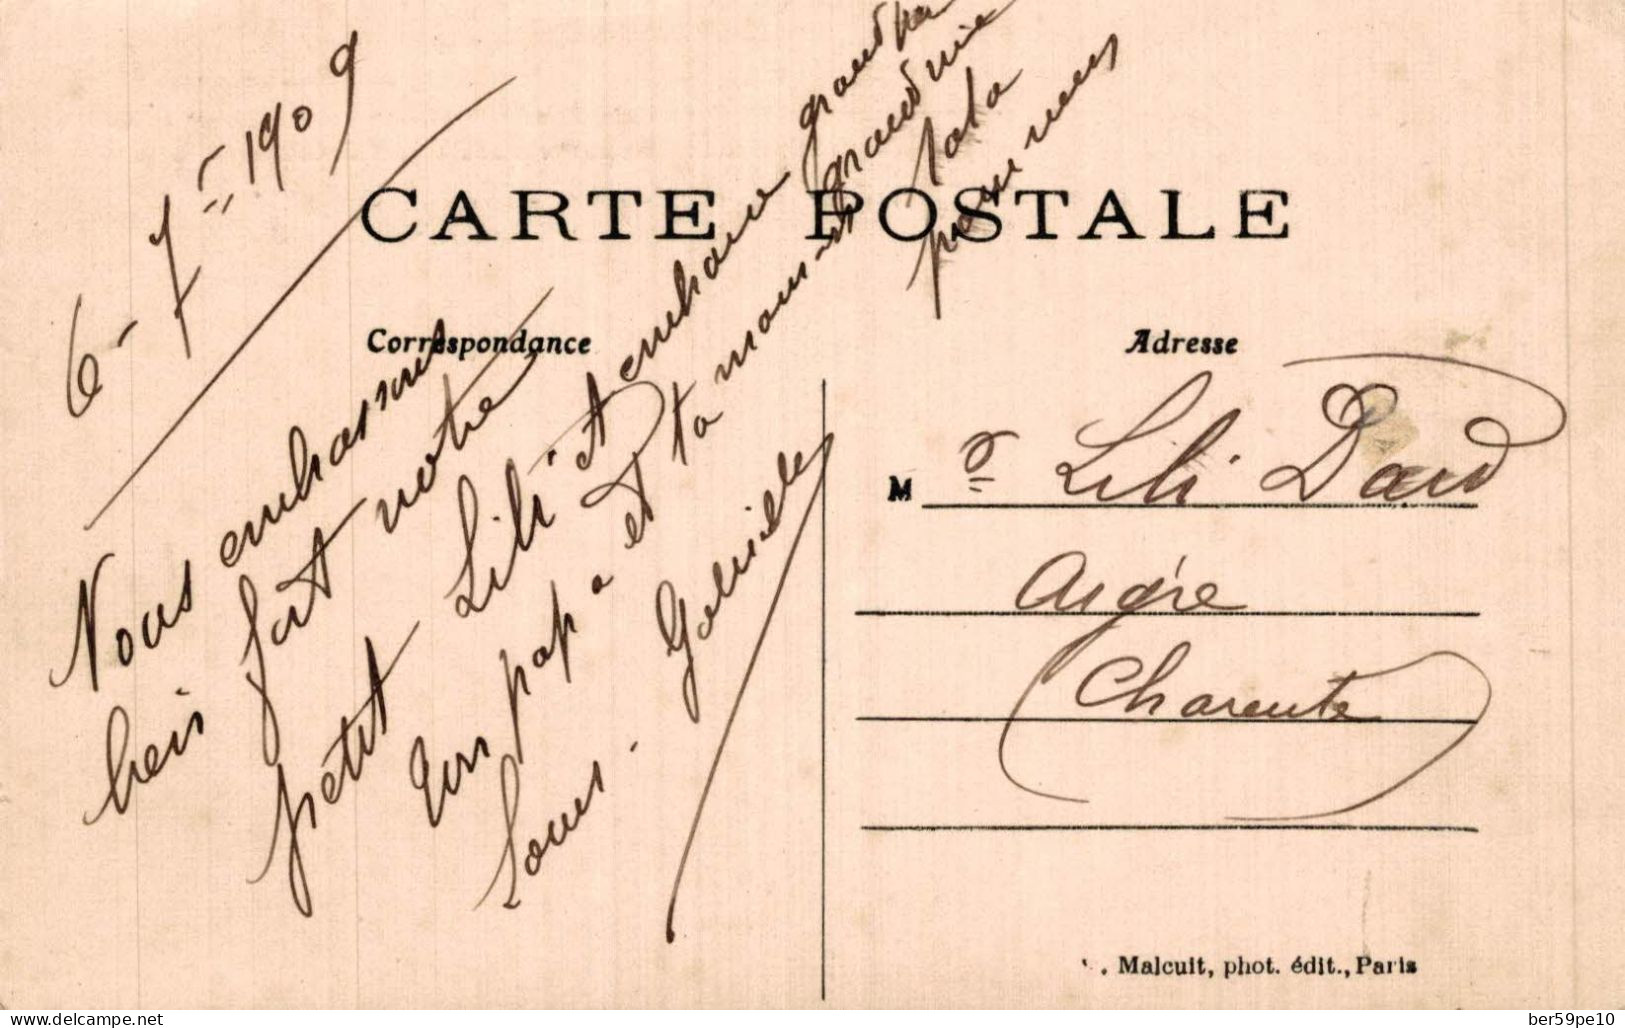 6 - 7bre 1909
CARTE POSTALE
Correspondance
Nous embrassons
bien fort notre
petit Lili et embrasse grand père
ton papa et ta maman et grand mère
tata
pour nous
Louis. Gabrielle
Adresse
M r Lili Dard
Aigre
Charente
. Malcuit, phot. édit., Paris
delcampe.net
ber59pe10